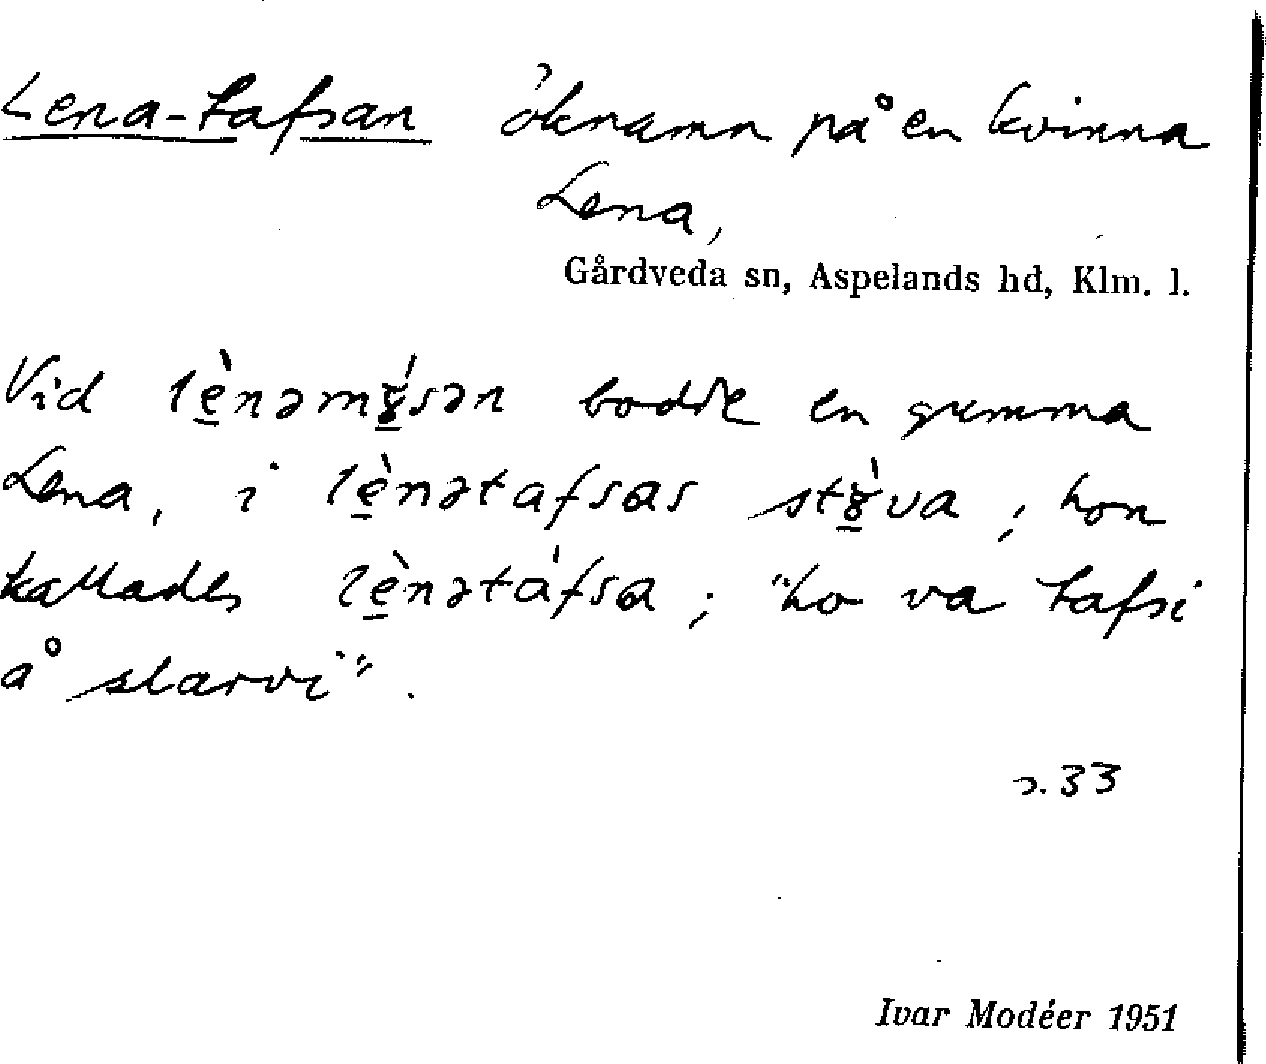 Lena-tafsan öknamn på en kvinna
Lena,
Gårdveda sn, Aspelands hd, Klm. l.
Vid lè̱nəmɤ̱́sən bodde en gumma
Lena, i lè̱nətafsas stɤ̱̀va; hon
kallades lè̱nətáfsa; "ho va tafsi
å slarvi".
s. 33
Ivar Modéer 1951